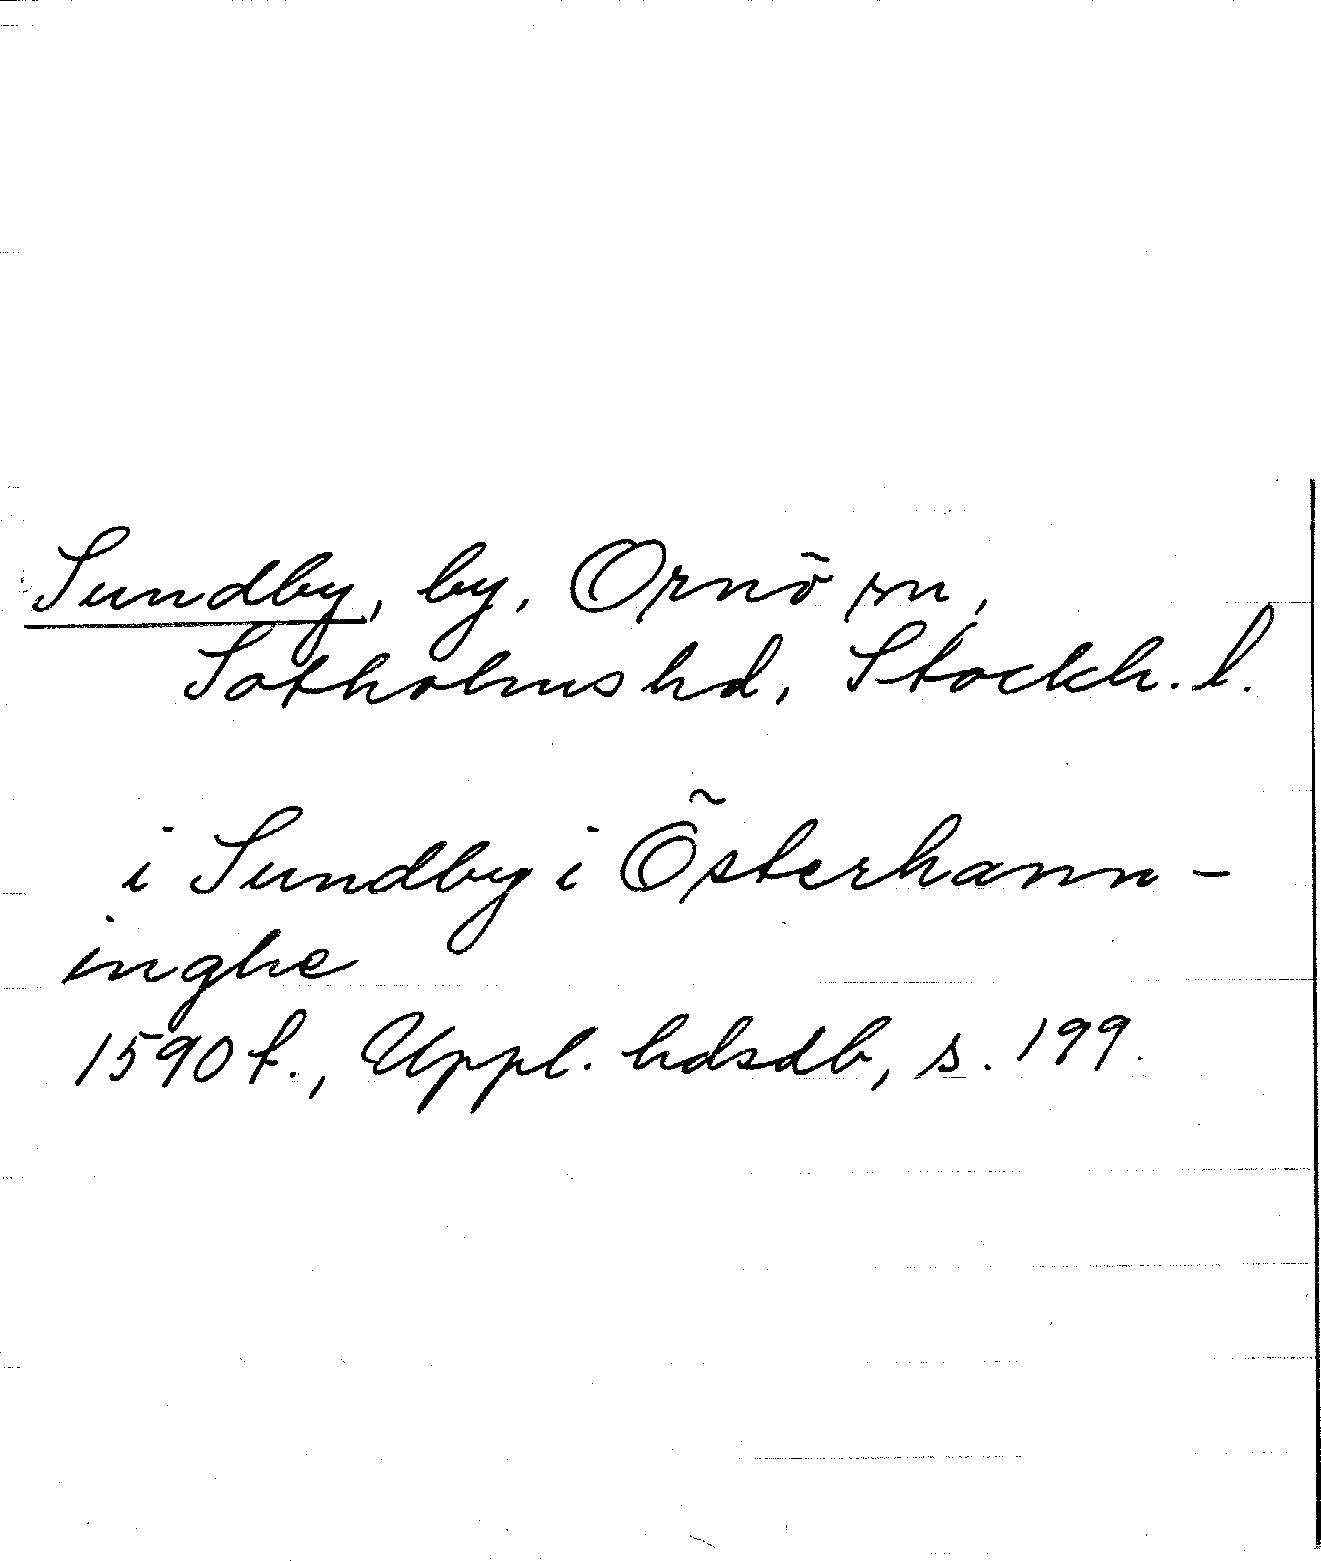 Sundby, by, Ornö sn,
Sotholms hd, Stockh. l.
i Sundby i Österhann-
inghe
1590 t., Uppl. hdsdb, s. 199.